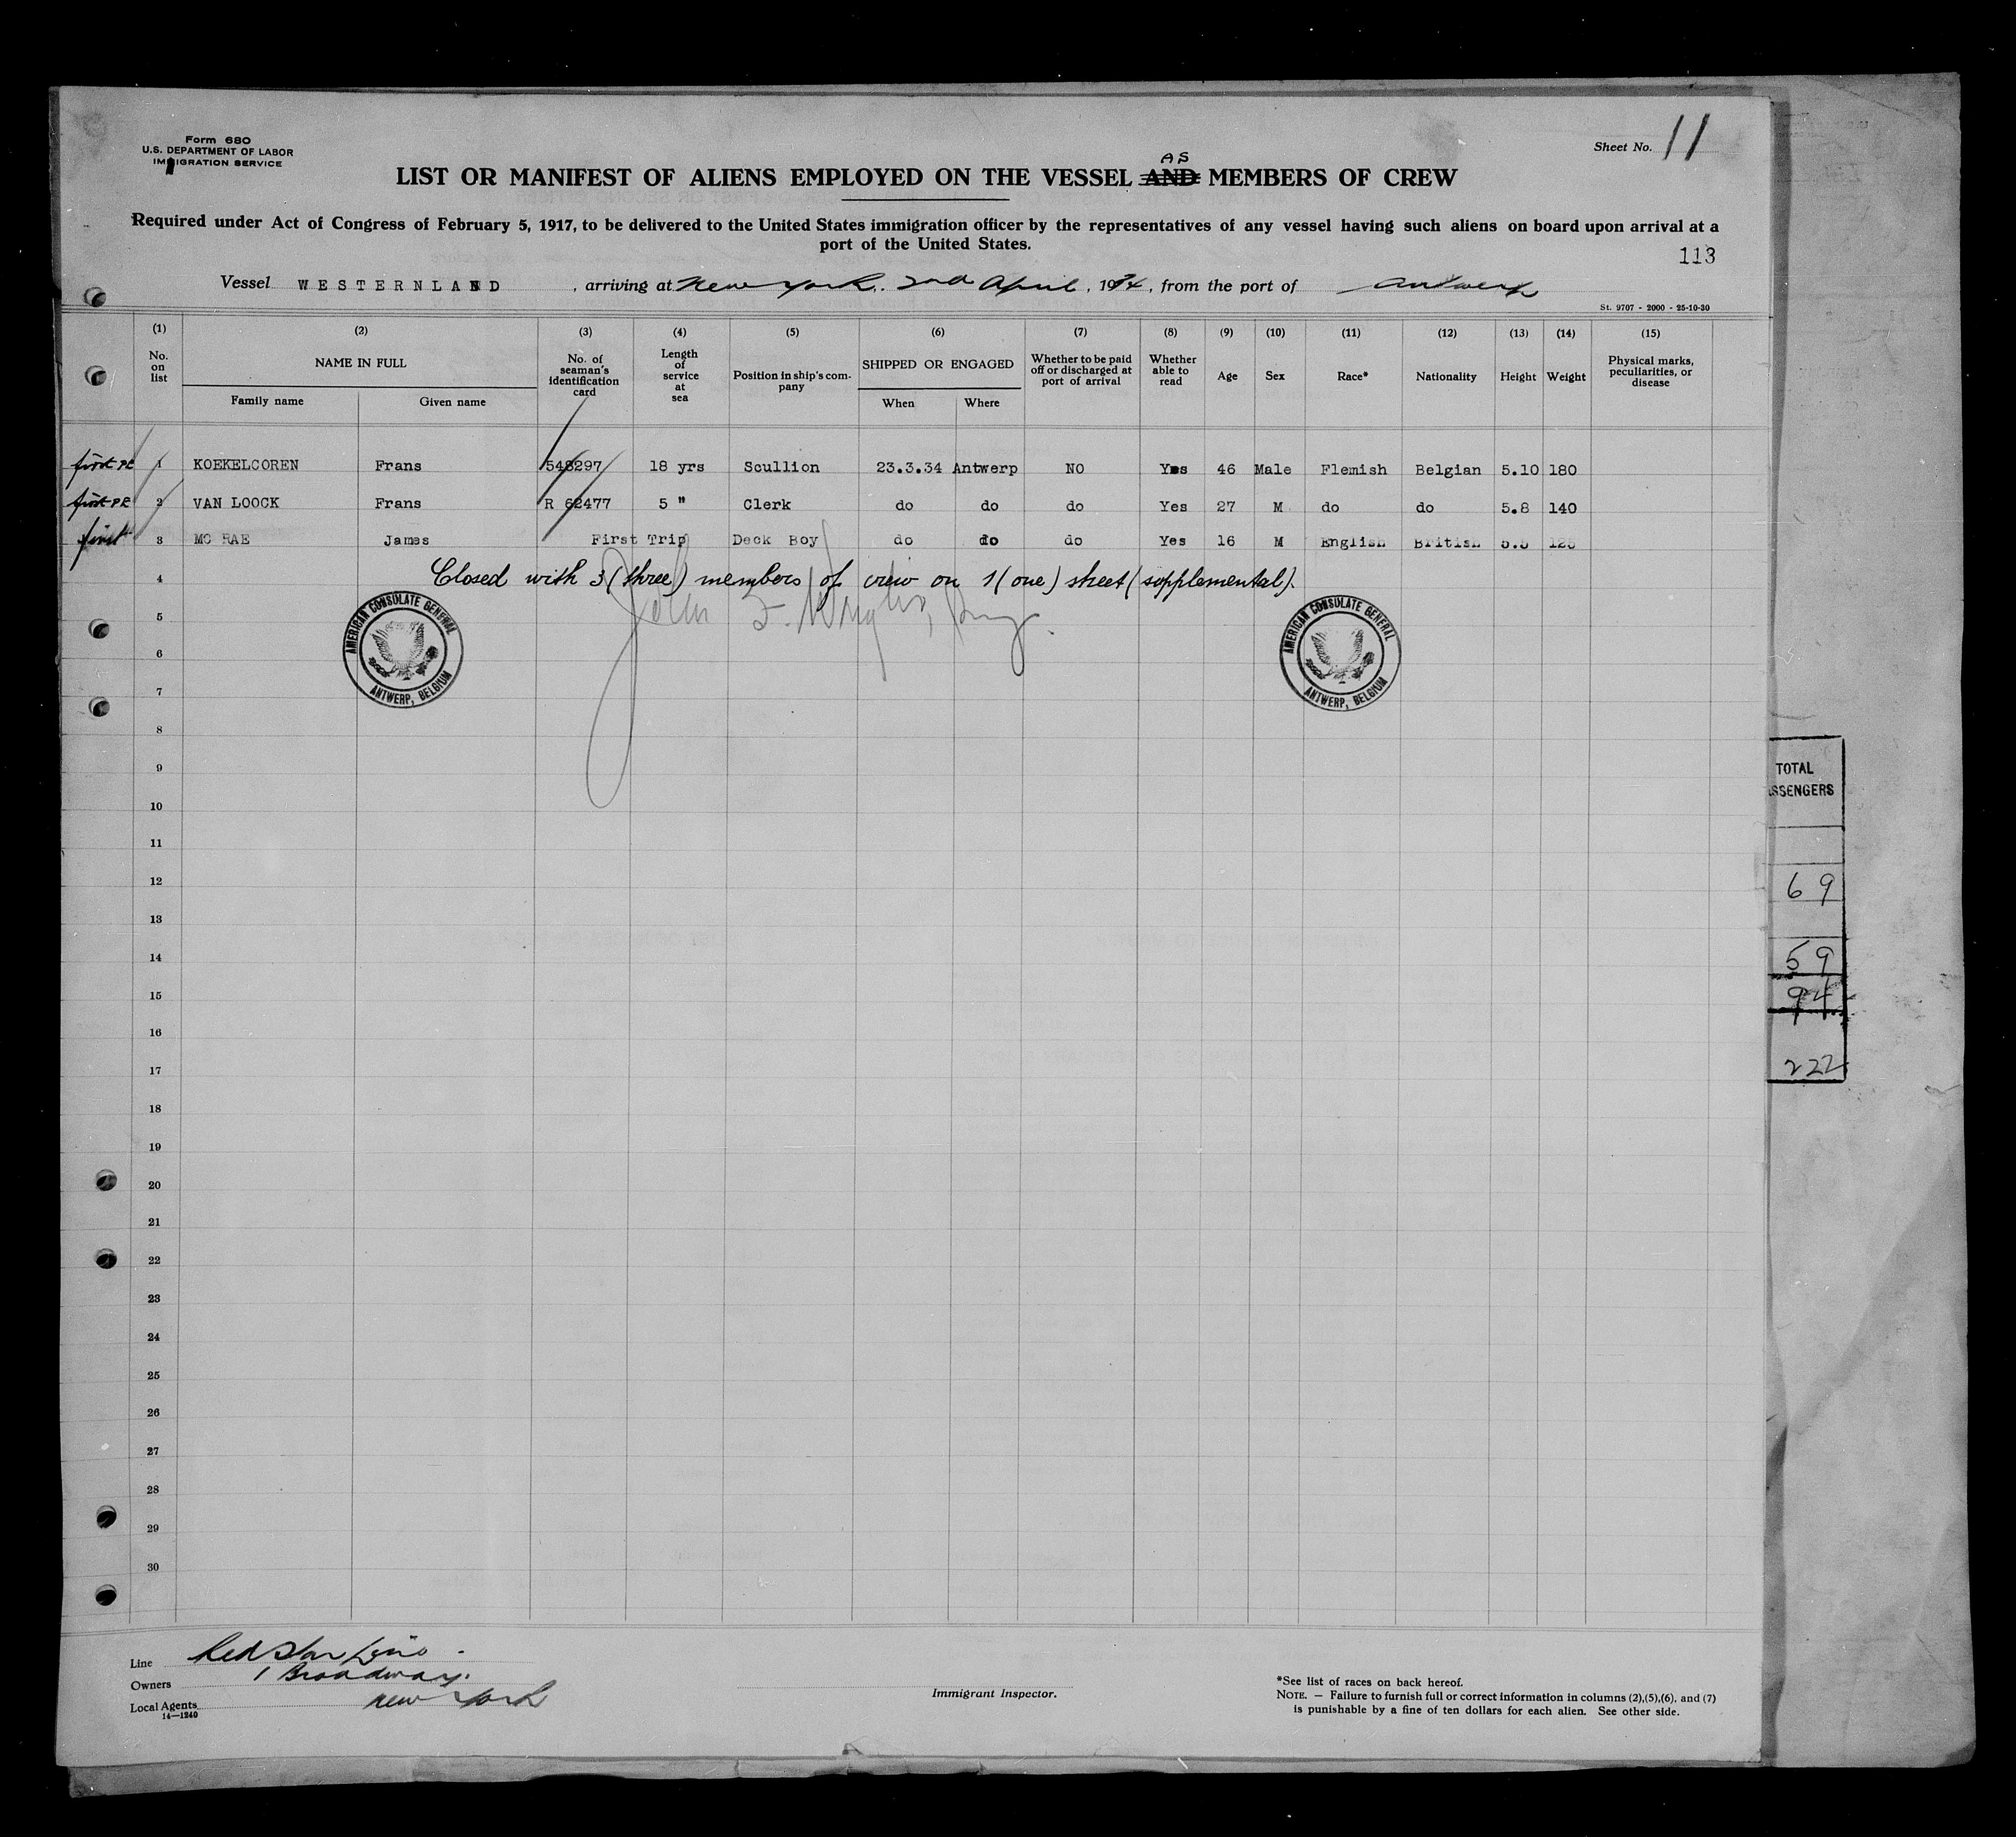 Form 680
U.S. DEPARTMENT OF LABOR
IMMIGRATION SERVICE
Sheet No. 11
AS
LIST OR MANIFEST OF ALIENS EMPLOYED ON THE VESSEL AND MEMBERS OF CREW
Required under Act of Congress of February 5, 1917, to be delivered to the United States immigration officer by the representatives of any vessel having such aliens on board upon arrival at a
port of the United States.
113
Vessel WESTERNLAND, arriving at New York, 2nd April, 1934, from the port of Antwerp
St. 9707 - 2000 - 25-10-30
(1) (2) (3) (4) (5) (6) (7) (8) (9) (10) (11) (12) (13) (14) (15)
No. on list
NAME IN FULL
Family name Given name
No. of seaman's identification card
Length of service at sea
Position in ship's company
SHIPPED OR ENGAGED
When Where
Whether to be paid off or discharged at port of arrival
Whether able to read
Age
Sex
Race*
Nationality
Height
Weight
Physical marks, peculiarities, or disease
first PE 1 KOEKELCOREN Frans 548297 18 yrs Scullion 23.3.34 Antwerp NO Yes 46 Male Flemish Belgian 5.10 180
first PE 2 VAN LOOCK Frans R 62477 5 " Clerk do do do Yes 27 M do do 5.8 140
first 3 MC RAE James First Trip Deck Boy do do do Yes 16 M English British 5.5 125
4 Closed with 3 (three) members of crew on 1 (one) sheet (supplemental).
5 John F.
AMERICAN CONSULATE GENERAL
ANTWERP, BELGIUM
AMERICAN CONSULATE GENERAL
ANTWERP, BELGIUM
6
7
8
9
10
11
12
13
14
15
16
17
18
19
20
21
22
23
24
25
26
27
28
29
30
TOTAL
SSENGERS
69
59
94
222
Line Red Star Line
Owners 1 Broadway.
Local Agents New York
14—1240
Immigrant Inspector.
*See list of races on back hereof.
NOTE. — Failure to furnish full or correct information in columns (2),(5),(6), and (7)
is punishable by a fine of ten dollars for each alien. See other side.